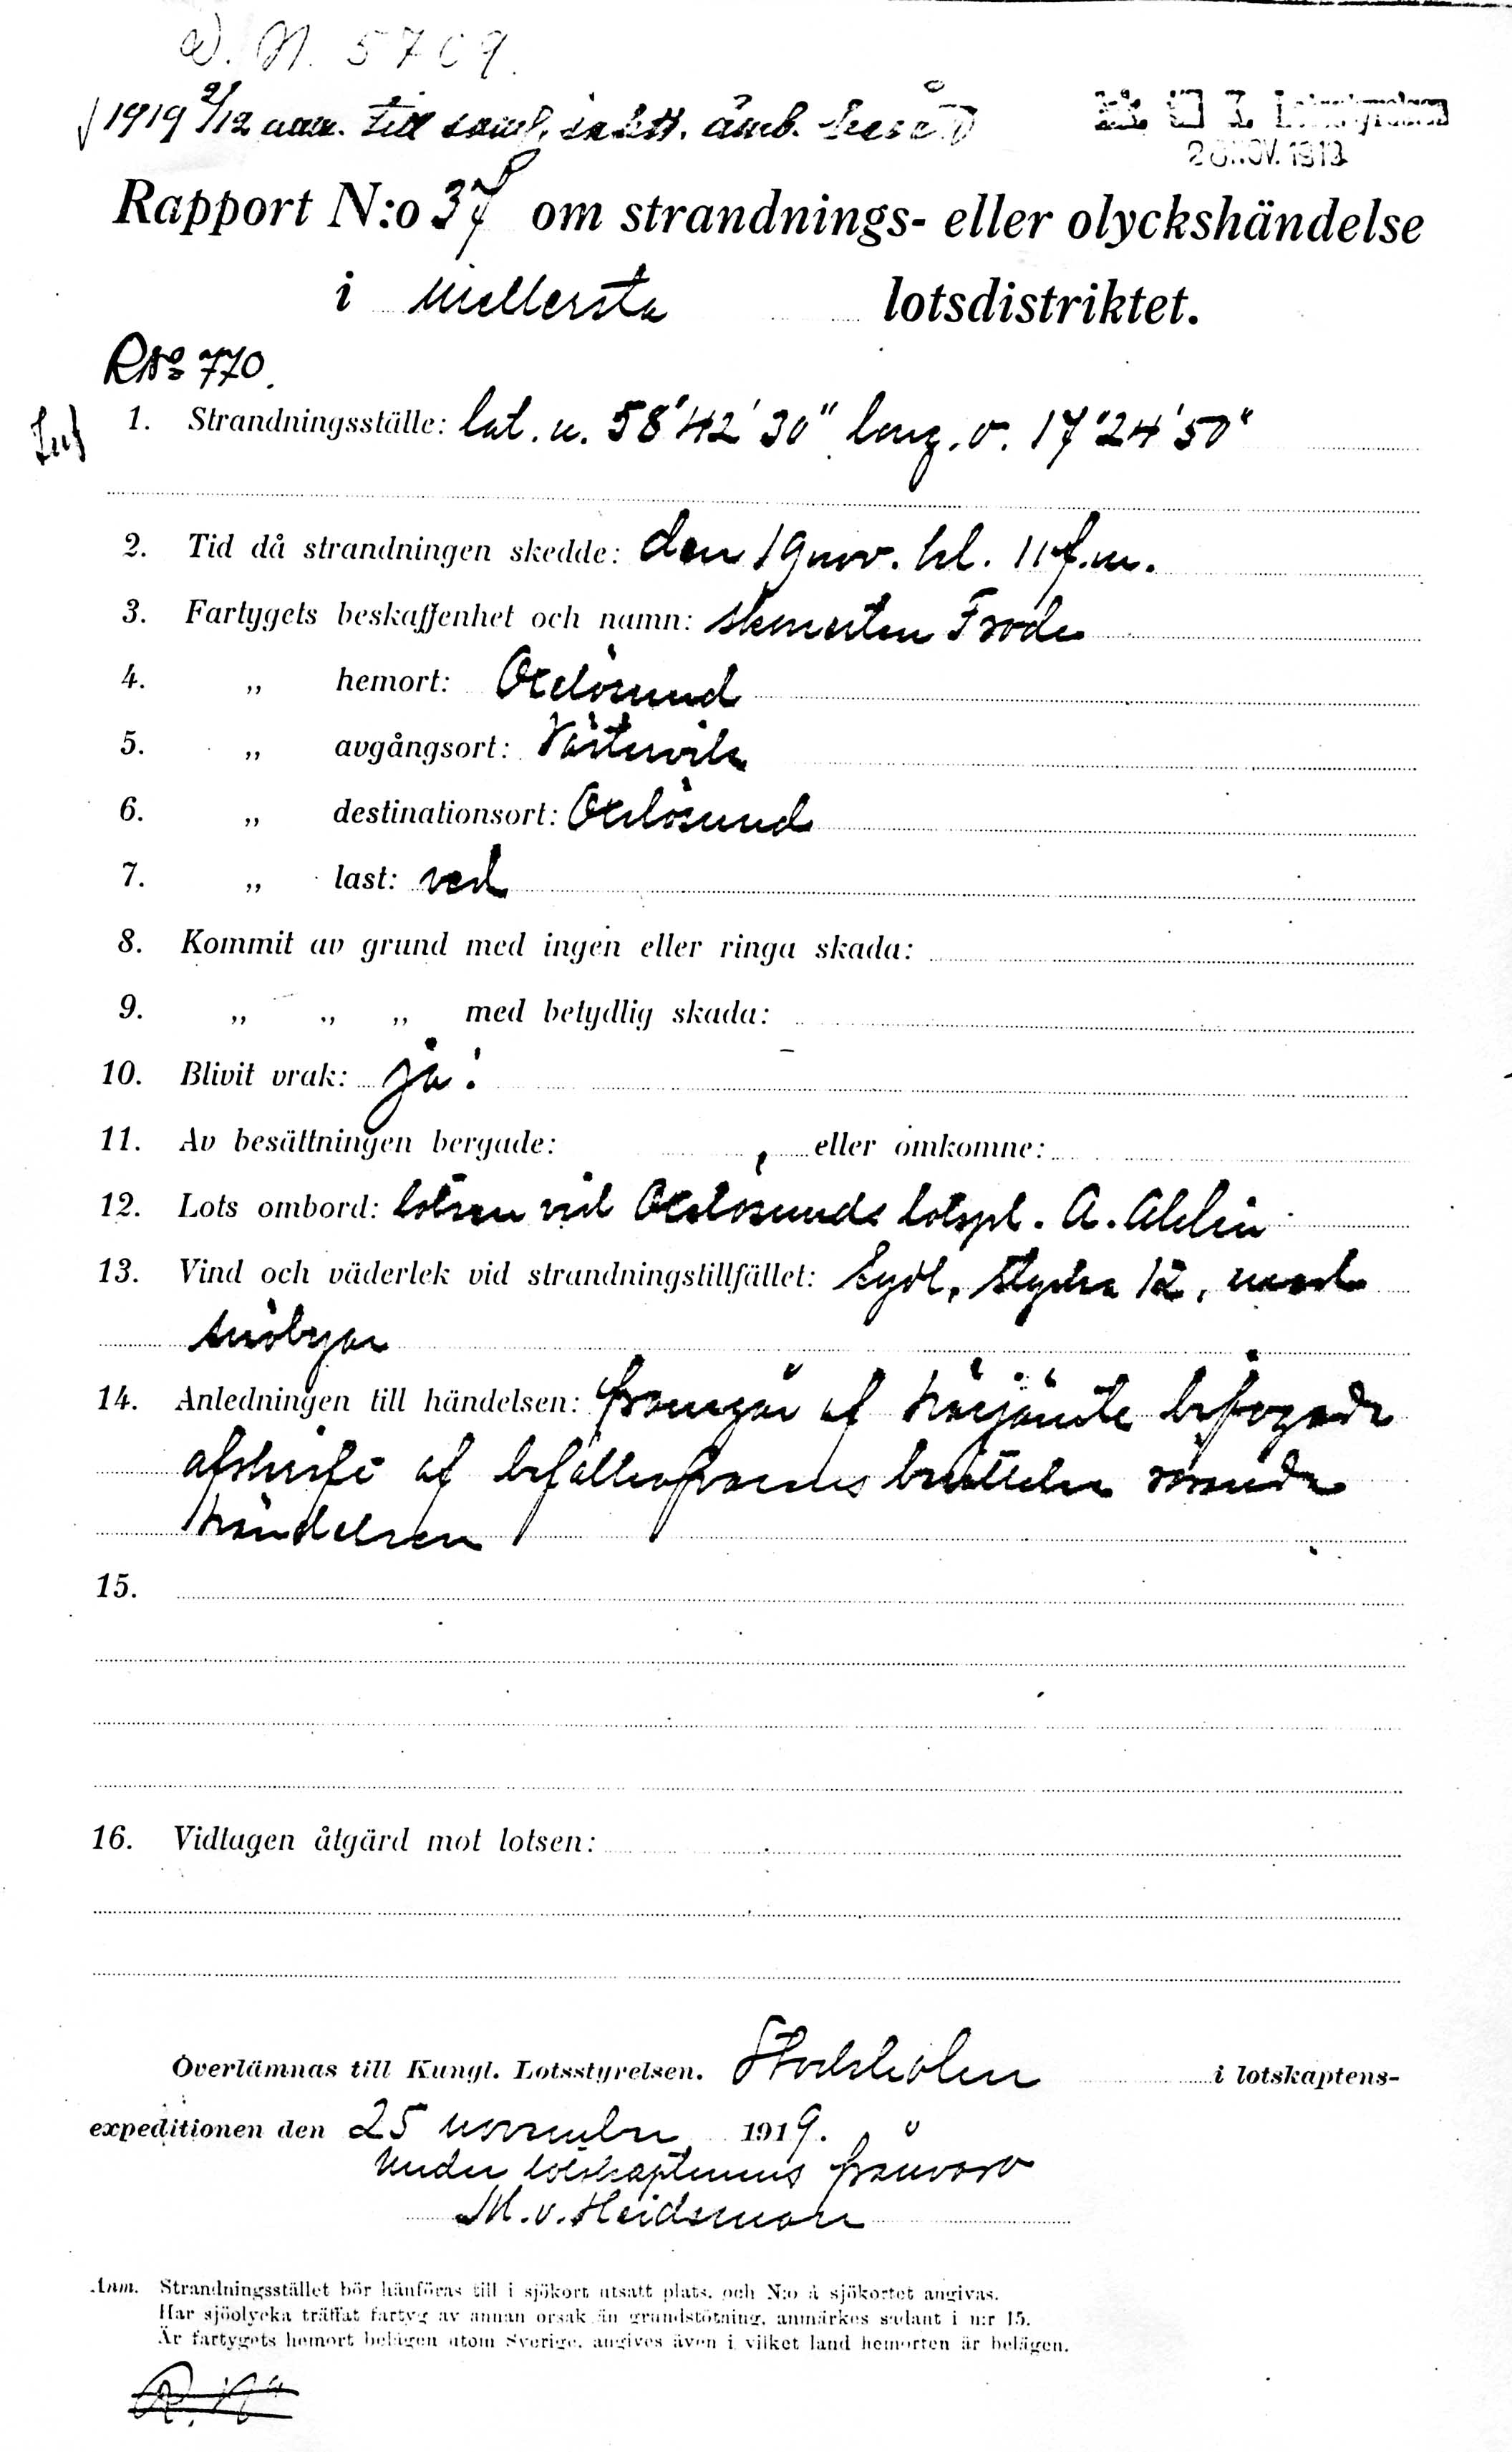 D. N. 5709.
1919 2/12 anm. till
Lotsstyrelsen
NOV. 1919
Rapport N:o 37 om strandnings- eller olyckshändelse
i mellersta lotsdistriktet.
RNo 770.
1. Strandningsställe: lat. n. 58°42'30" long. o. 17°24'50"
2. Tid då strandningen skedde: den 19 nov. kl. 11 f.m.
3. Fartygets beskaffenhet och namn: skonerten Frode
4. „ hemort: Oxelösund
5. „ avgångsort: Västervik
6. „ destinationsort: Oxelösund
7. „ last: ved
8. Kommit av grund med ingen eller ringa skada:
9. „ „ „ med betydlig skada:
10. Blivit vrak: ja.
11. Av besättningen bergade: , eller omkomne:
12. Lots ombord: lotsen vid Oxelösunds lotspl. A. Ahlin
13. Vind och väderlek vid strandningstillfället: Sydl. styrka 12, med
snöbyar
14. Anledningen till händelsen: framgår af härjämte bifogade
afskrift af befälhafvarens berättelse rörande
händelsen
15.
16. Vidtagen åtgärd mot lotsen:
Överlämnas till Kungl. Lotsstyrelsen. Stockholm i lotskaptens-
expeditionen den 25 november 1919.
Under lotskaptenens frånvaro
M. v. Heideman
Anm. Strandningsstället bör hänföras till i sjökort utsatt plats, och N:o å sjökortet angivas.
Har sjöolycka träffat fartyg av annan orsak än grundstötning, anmärkes sådant i n:r 15.
Är fartygets hemort belägen utom Sverige, angives även i vilket land hemorten är belägen.